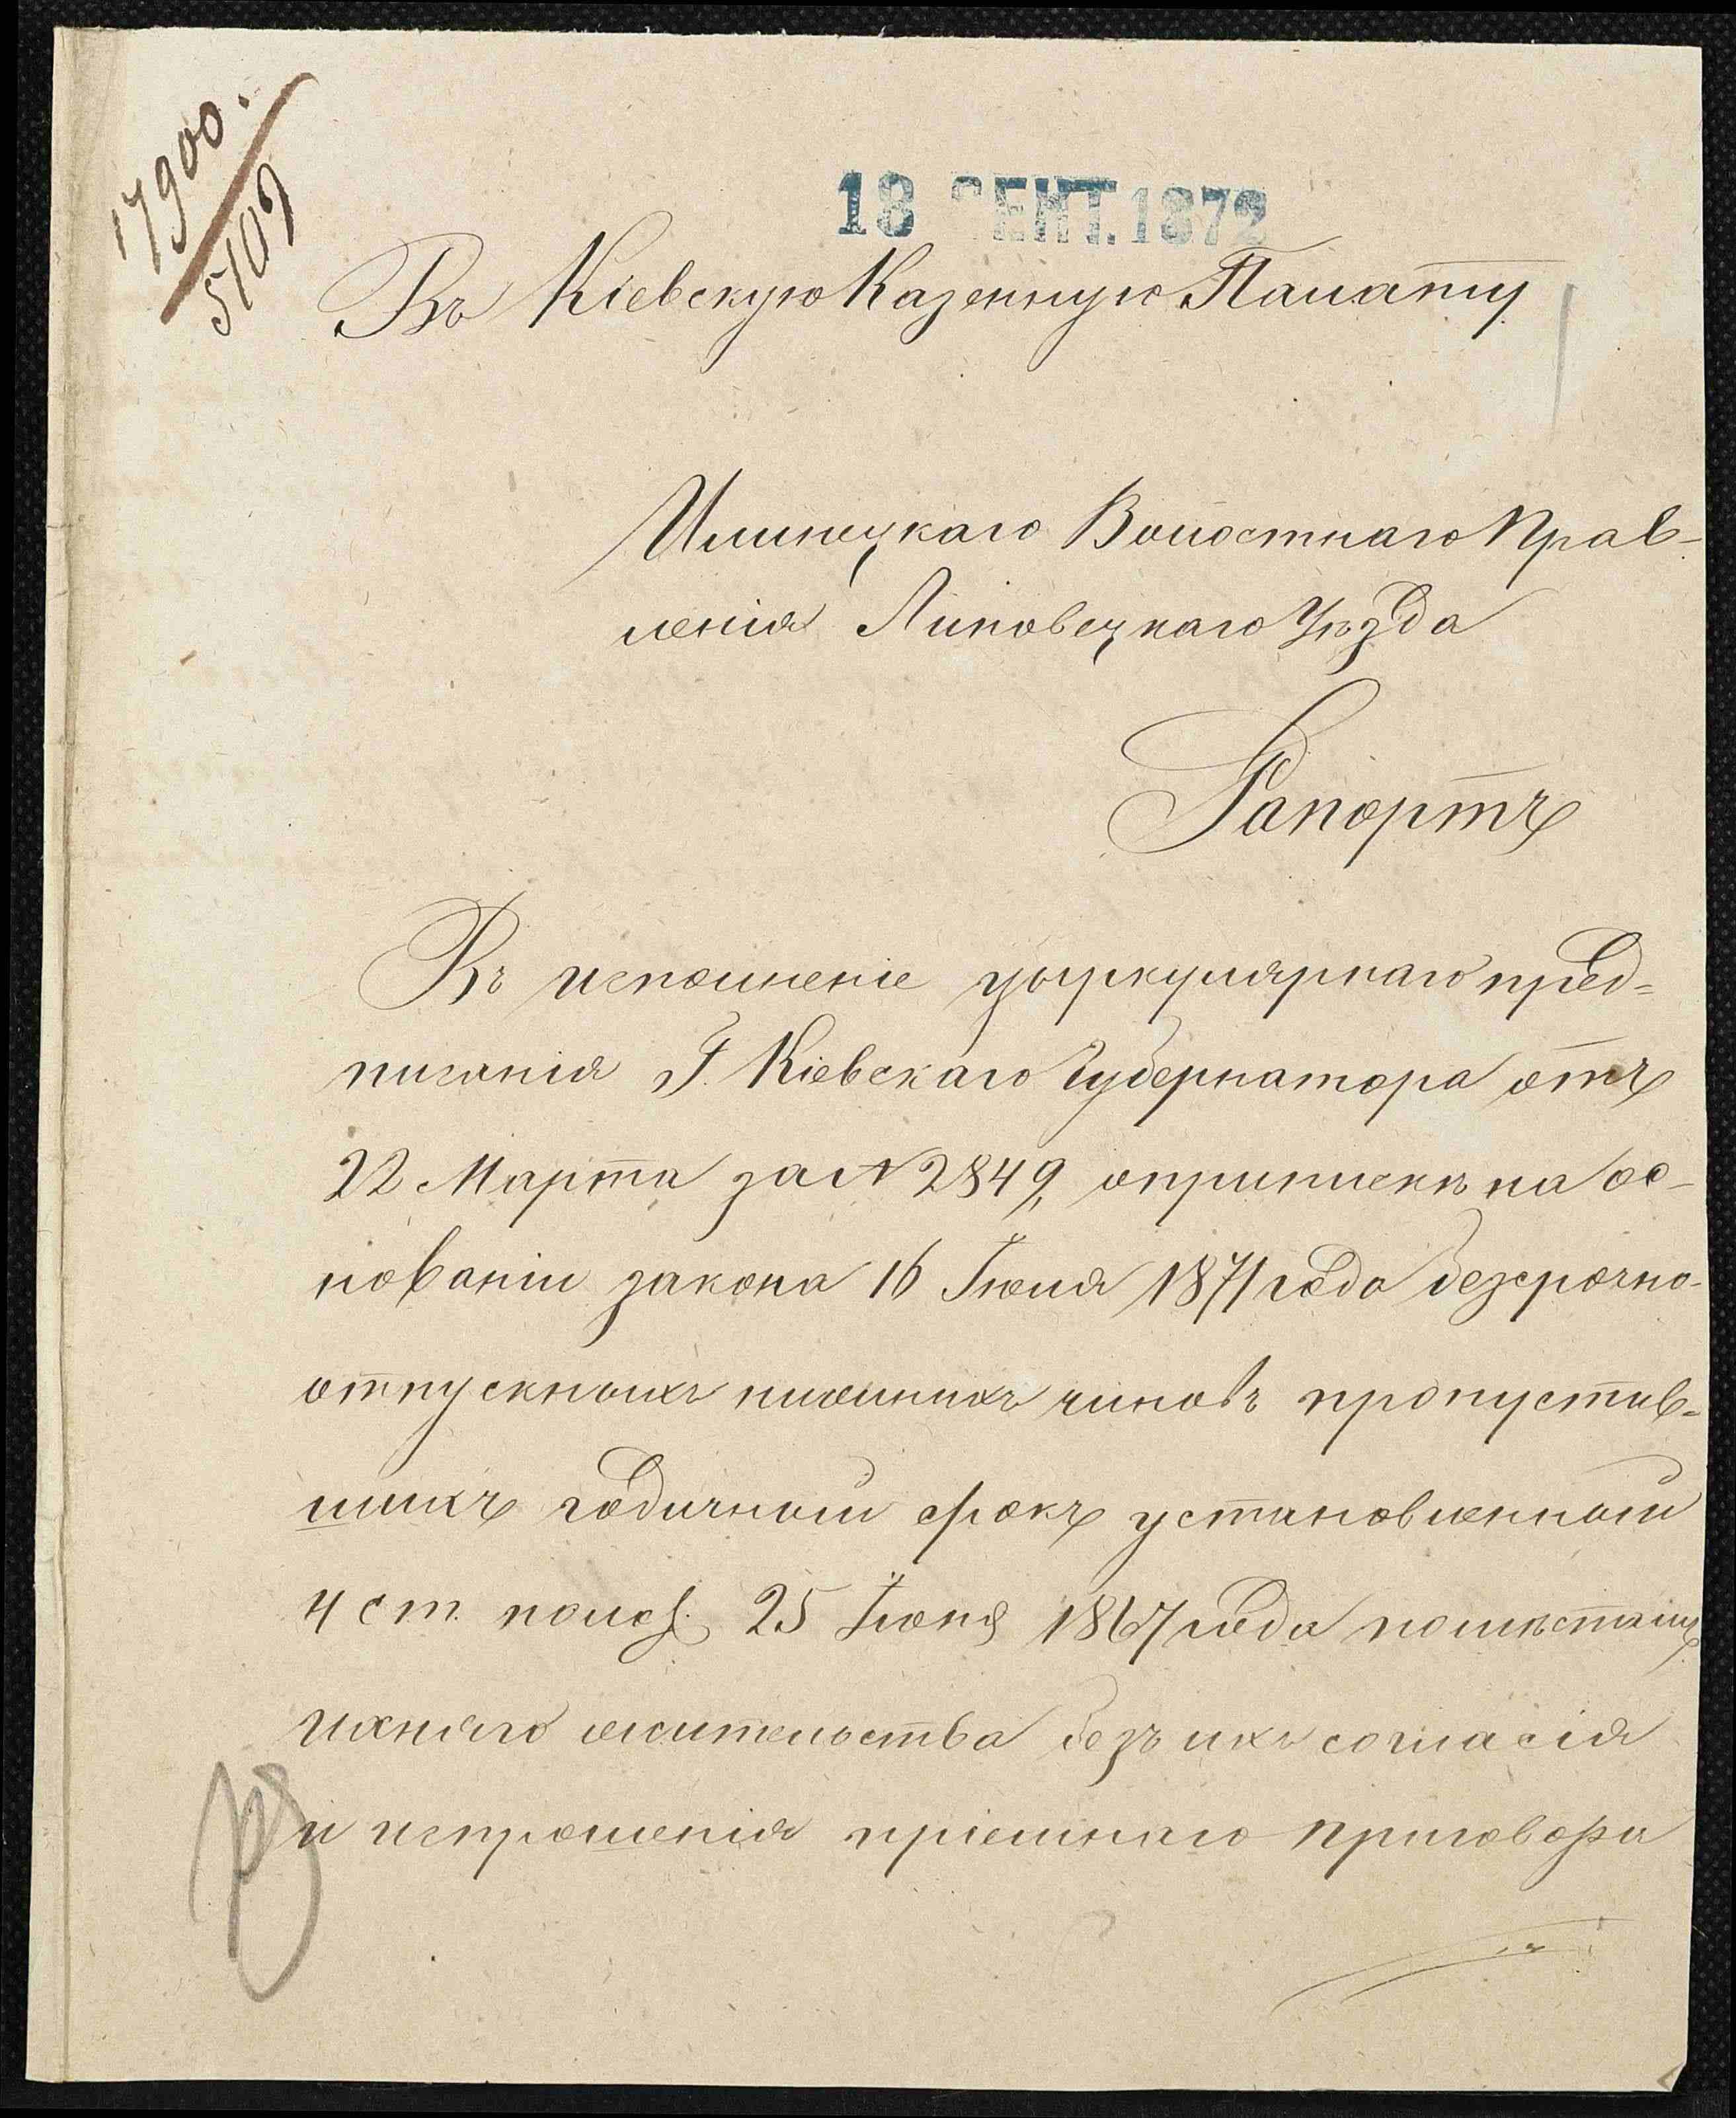 17900.
5109
18 СЕНТ. 1872
Въ Кіевскую Казенную Палату
Илинецкаго Волостнаго Прав-
ленія Липовецкаго Уѣзда
Рапортъ
Въ исполненіе цыркулярнаго пред=
писанія Г. Кіевскаго Губернатора отъ
22 Марта за № 2849, оприпискѣ на ос-
нованіи закона 16 Іюня 1871 года безсрочно-
отпускныхъ нижнихъ чиновъ пропустив=
шихъ годичный срокъ установленный
4 ст. полож. 25 Іюня 1867 года помѣстамъ
ихняго жительства безъ ихъ согласія
и испрошенія пріемнаго приговора